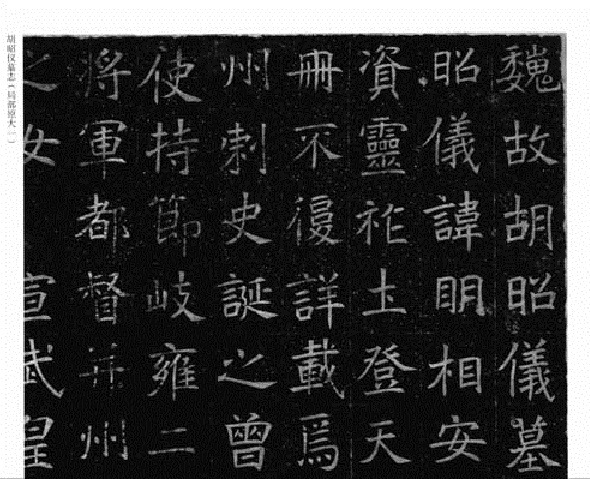 魏故胡昭儀墓
昭儀諱明相安
資靈祚土登天
冊不復詳載焉
州刺史誕之曾
使持節岐雍二
將軍都督并州
之女宣武皇
胡昭仪墓志（局部原大一）